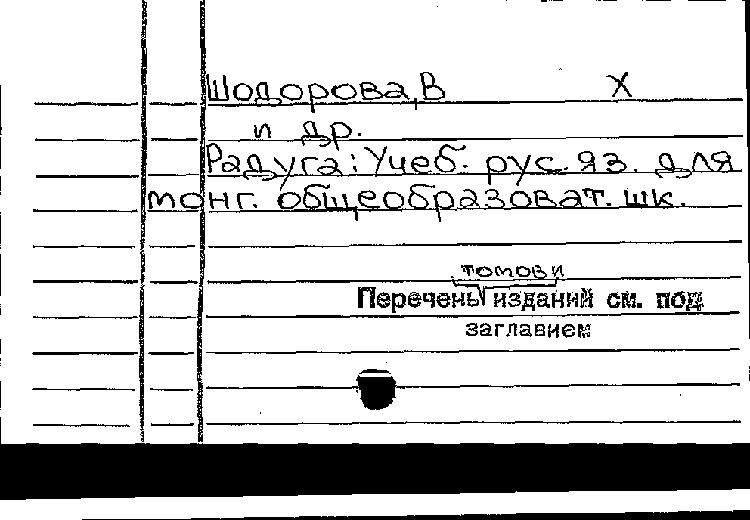 Шодорова, В Х
и др.
Радуга: Учеб. рус. яз. для
монг. общеобразоват. шк.
томов и
Перечень изданий см. под
заглавием